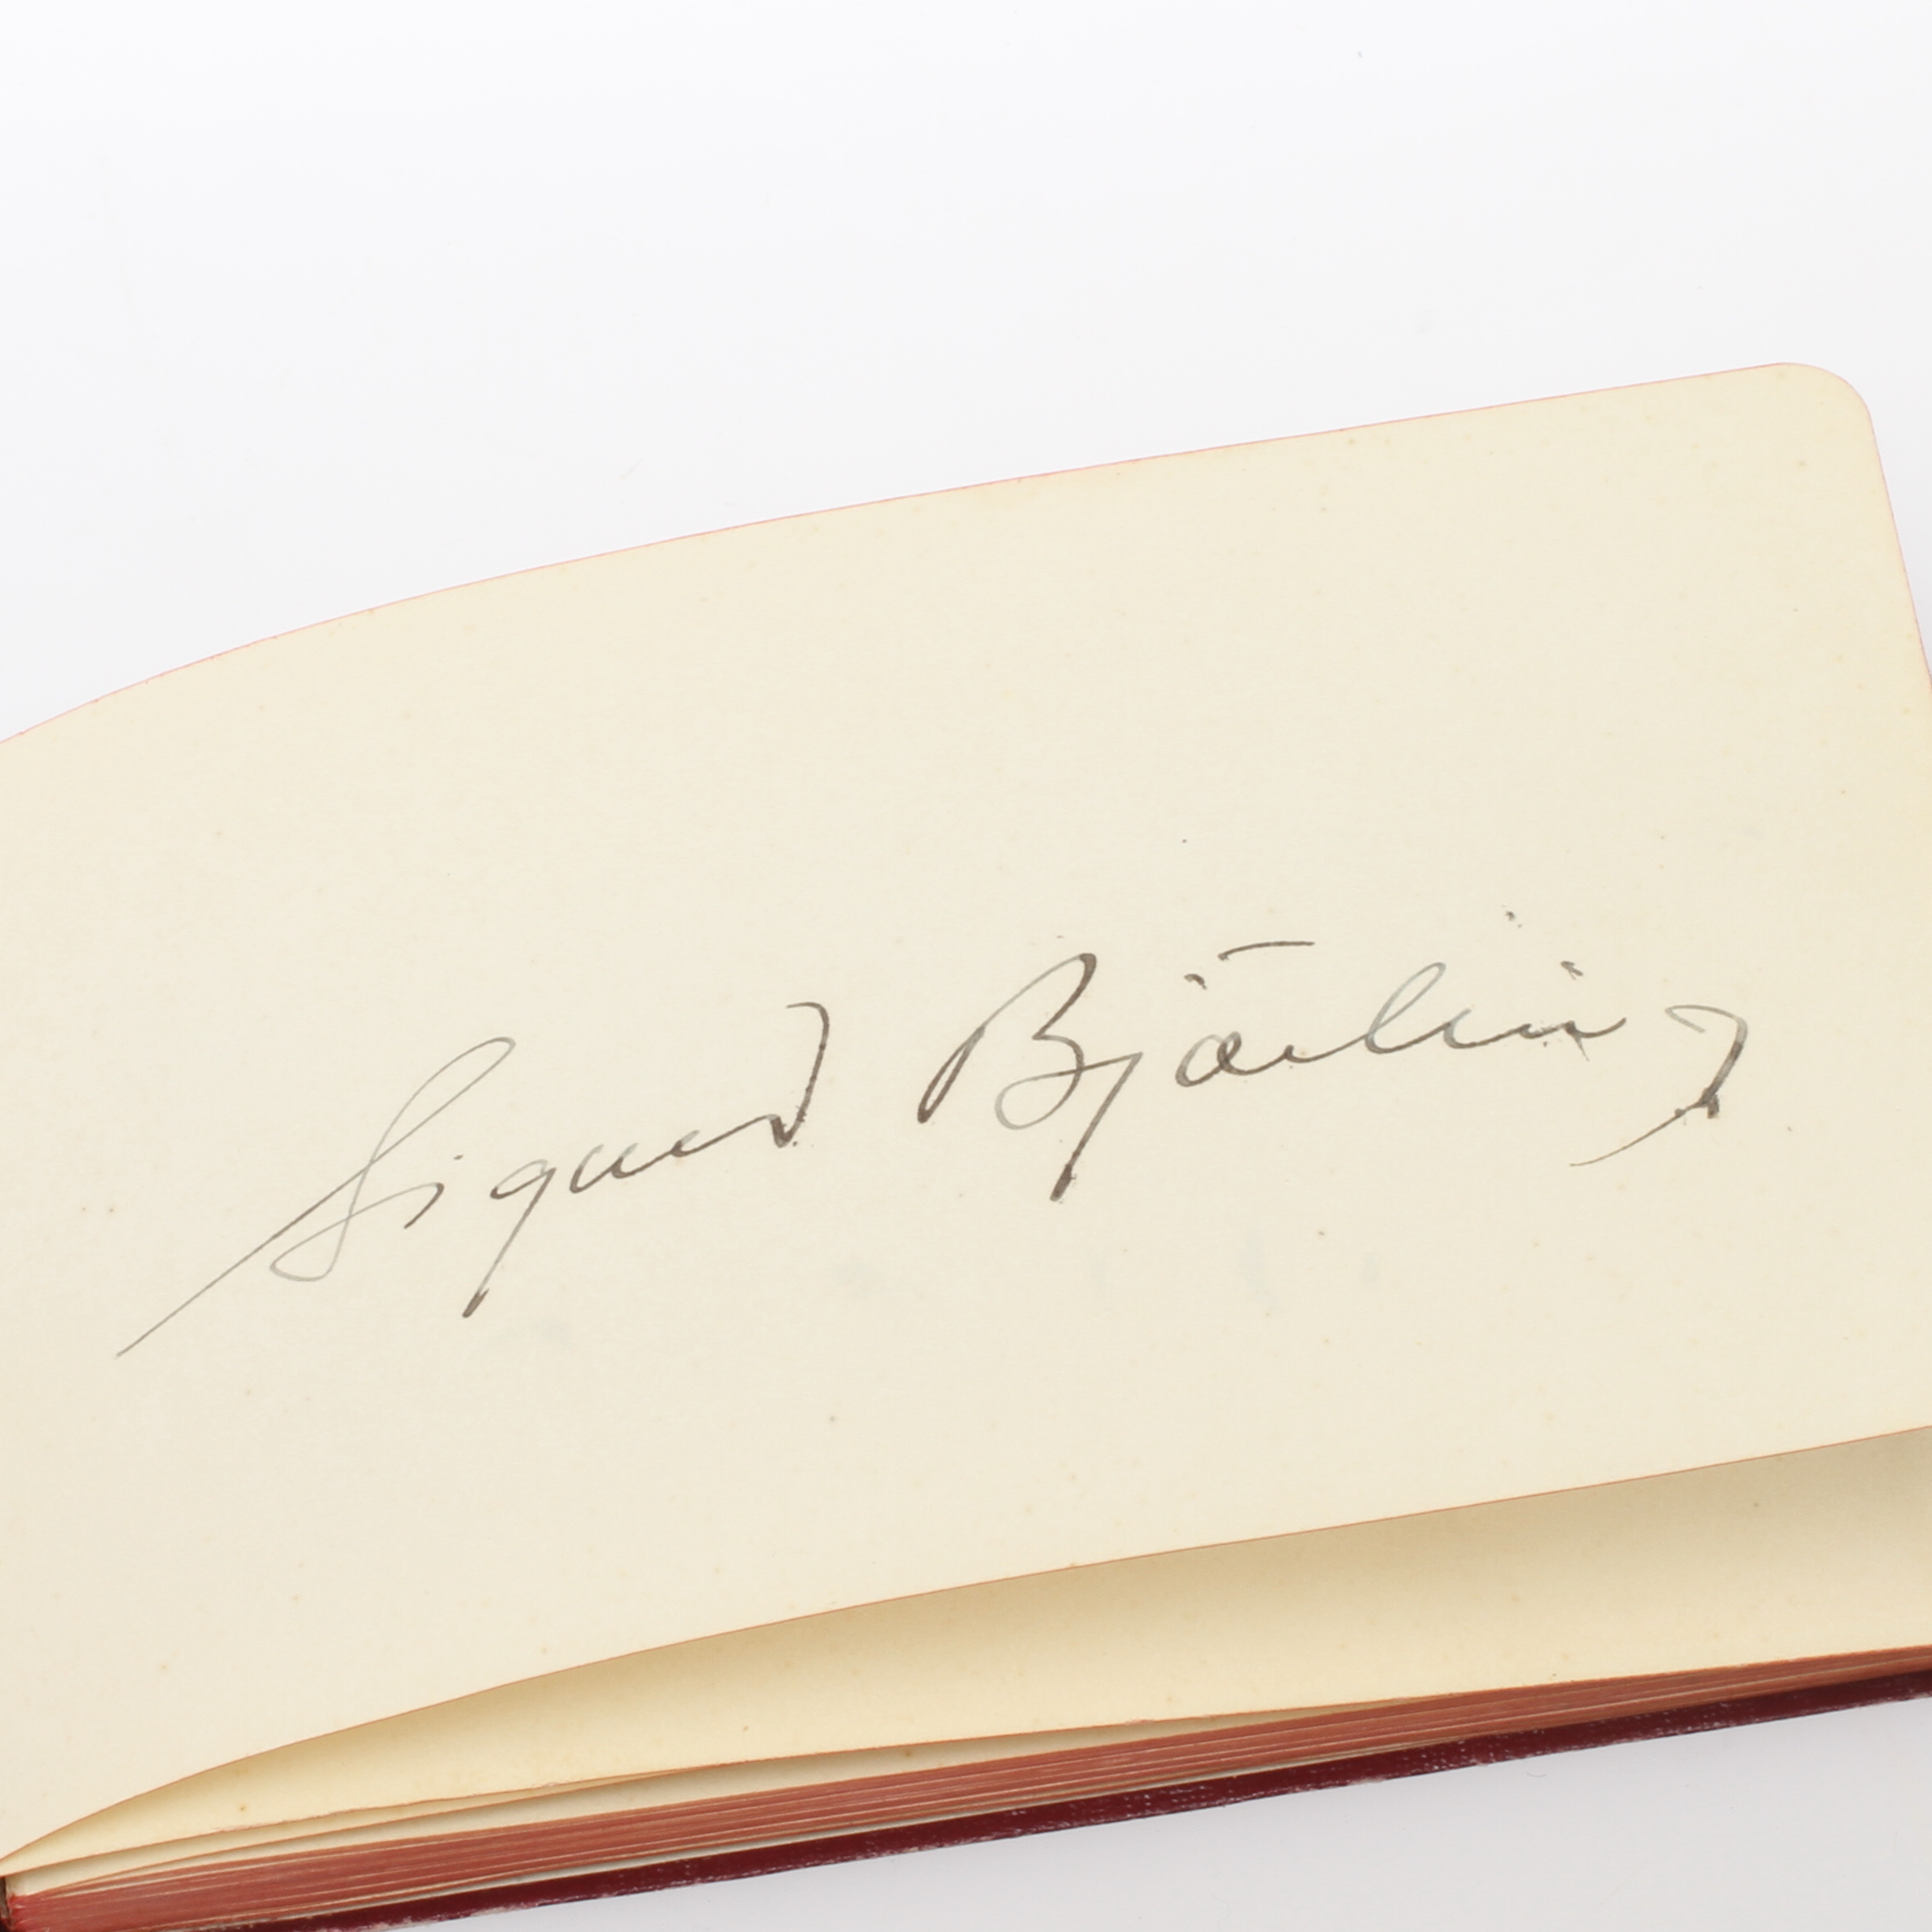 Sigurd Björling